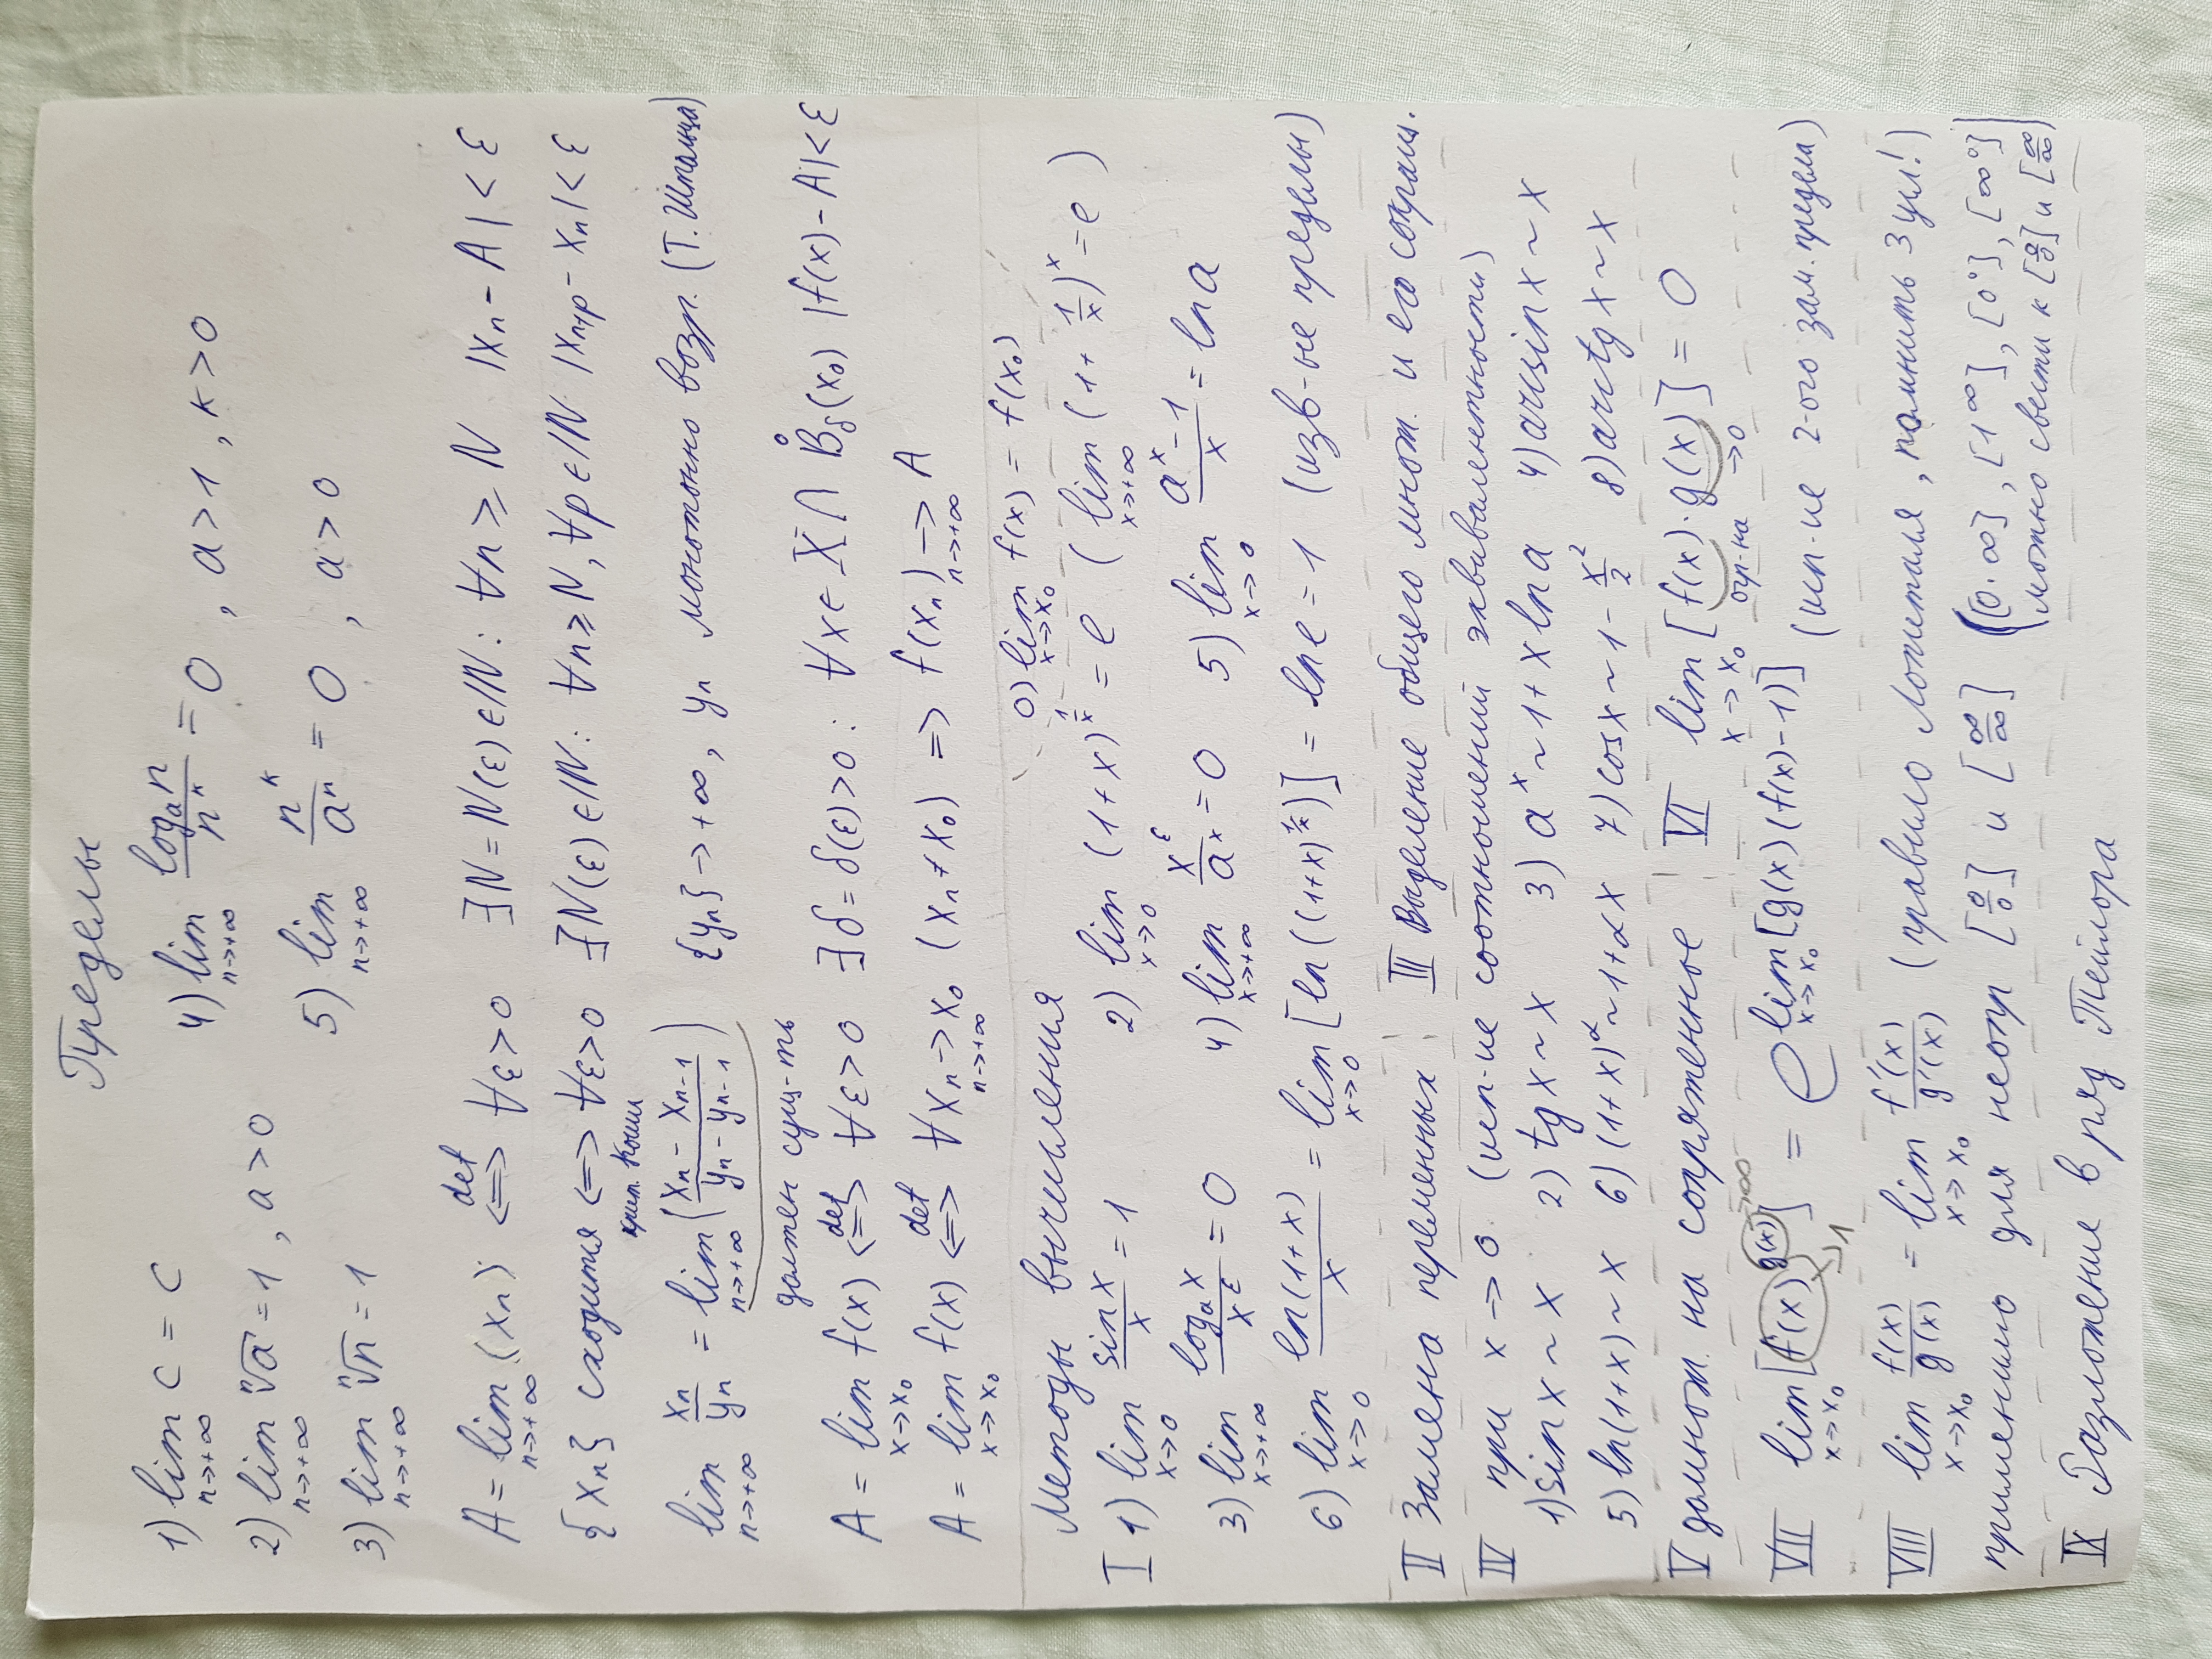 Пределы
1) lim_{n→+∞} C = C    4) lim_{n→+∞} log_a n / n^k = 0, a>1, k>0
2) lim_{n→+∞} ⁿ√a = 1, a>0    5) lim_{n→+∞} n^k / a^n = 0, a>0
3) lim_{n→+∞} ⁿ√n = 1
A = lim_{n→+∞} (x_n) <=>^{def} ∀ε>0 ∃N=N(ε)∈ℕ: ∀n≥N |x_n - A| < ε
{x_n} сходится <=> ∀ε>0 ∃N(ε)∈ℕ: ∀n≥N, ∀p∈ℕ |x_{n+p} - x_n| < ε
крит. Коши
lim_{n→+∞} x_n / y_n = lim_{n→+∞} ( (x_n - x_{n-1}) / (y_n - y_{n-1}) ) {y_n}→+∞, y_n монотонно возр. (Т. Штольца)
должен сущ-ть
A = lim_{x→x_0} f(x) <=>^{def} ∀ε>0 ∃δ=δ(ε)>0: ∀x∈X∩B̊_δ(x_0) |f(x) - A| < ε
A = lim_{x→x_0} f(x) <=>^{def} ∀x_n →_{n→+∞} x_0 (x_n ≠ x_0) => f(x_n) →_{n→+∞} A
Методы вычисления    0) lim_{x→x_0} f(x) = f(x_0)
I 1) lim_{x→0} sin x / x = 1    2) lim_{x→0} (1+x)^{1/x} = e ( lim_{x→+∞} (1+1/x)^x = e )
3) lim_{x→+∞} log_a x / x^ε = 0    4) lim_{x→+∞} x^ε / a^x = 0    5) lim_{x→0} (a^x - 1) / x = ln a
6) lim_{x→0} ln(1+x) / x = lim_{x→0} [ln((1+x)^{1/x})] = ln e = 1 (изв-ые пределы)
II Замена переменных    III Выделение общего множ. и его сокращ.
IV при x→0 (исп-ие соотношений эквивалентности)
1) sin x ~ x    2) tg x ~ x    3) a^x ~ 1+x ln a    4) arcsin x ~ x
5) ln(1+x) ~ x    6) (1+x)^α ~ 1+αx    7) cos x ~ 1 - x²/2    8) arctg x ~ x
V домнож. на сопряженное    VI lim_{x→x_0} [f(x)·g(x)] = 0
огр-на →0
VII lim_{x→x_0} [f(x)^{g(x)}] = e^{lim_{x→x_0} [g(x)(f(x)-1)]} (исп-ие 2-ого зам. предела)
→1 →∞
VIII lim_{x→x_0} f(x) / g(x) = lim_{x→x_0} f'(x) / g'(x) (правило Лопиталя, помнить 3 усл!)
применимо для неопр [0/0] и [∞/∞] ([0·∞], [1^∞], [0^0], [∞^0]
можно свести к [0/0] и [∞/∞])
IX Разложение в ряд Тейлора